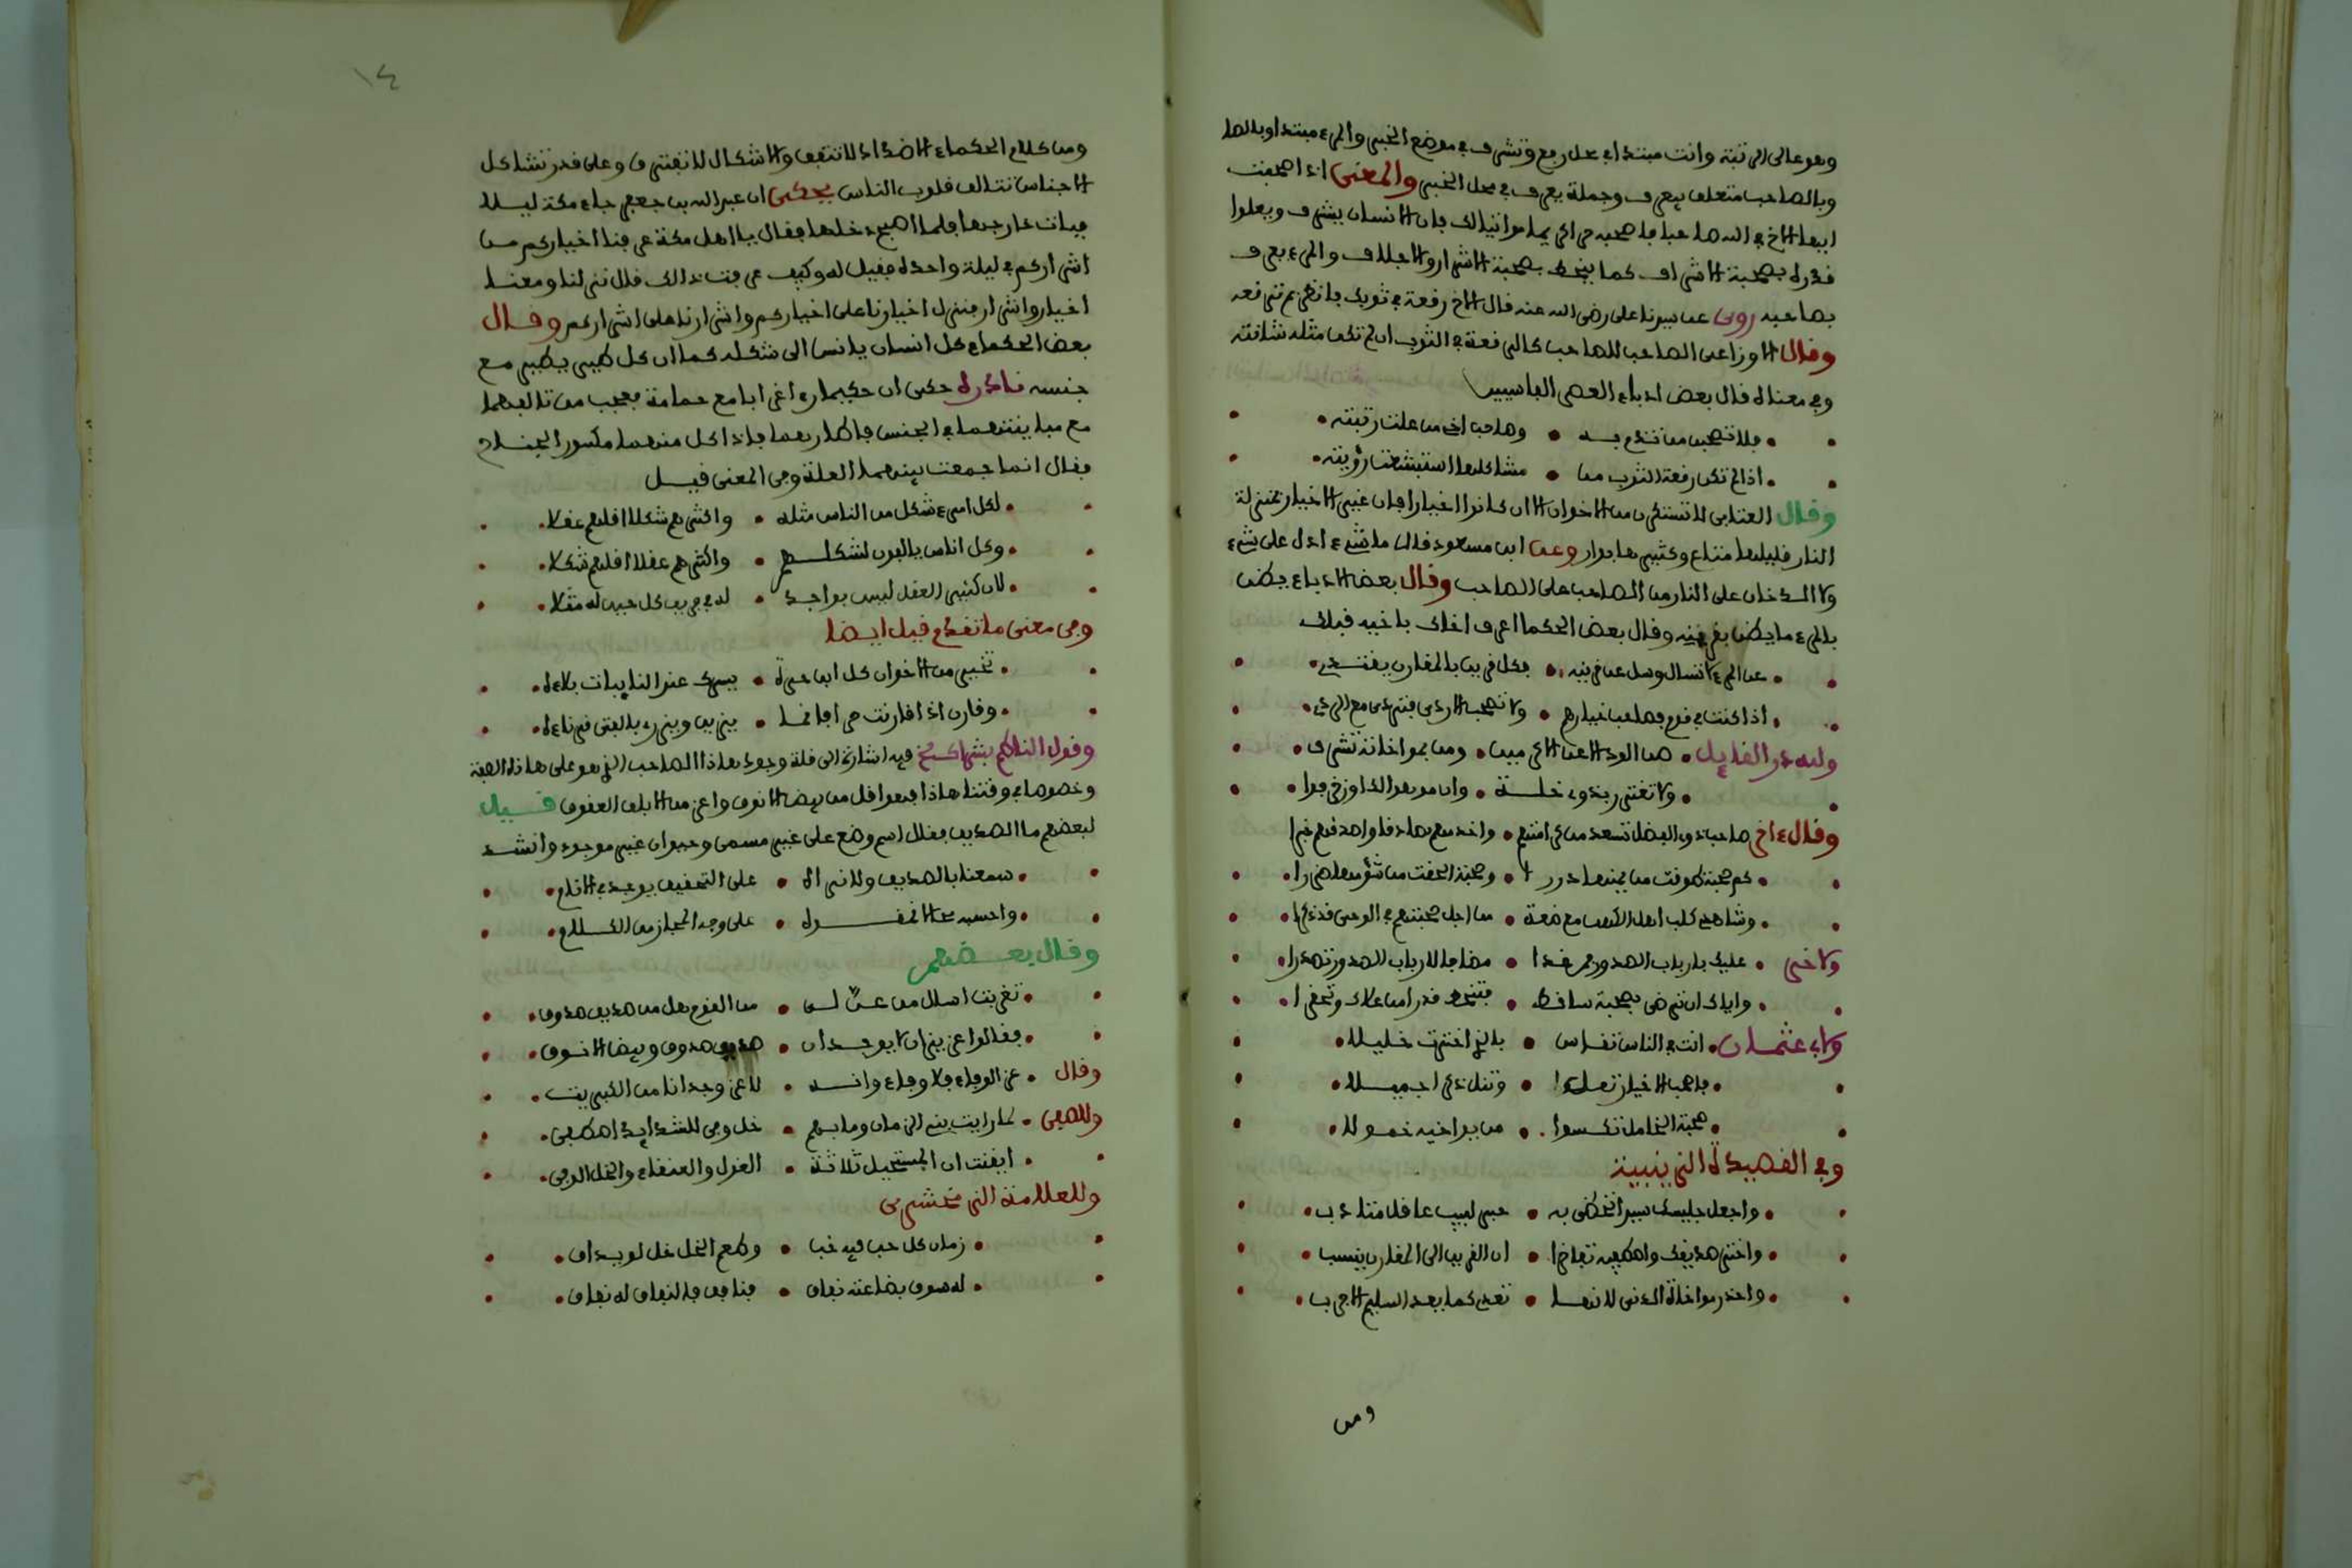 وهو عالى الرتبة وانت مبتدا في محل رفع وتشرف في موضع الخبر والمرء مبتدا وبالصا
وبالصاحب متعلق بيعرف وجملة يعرف في محل الخبر والمعنى اذا صحبت
ايها الاخ في الله صاحبا فاصحبه فان الانسان يشرف ويعلوا
قدره بصحبة الاشراف كما ينحط بصحبة الاشرار والاجلاف والمرء يعرف
بصاحبه روى عن سيدنا على رضى الله عنه قال الاخ رقعة في ثوبك فانظر بم ترقعه
وقال الاوزاعى الصاحب للصاحب كالرقعة في الثوب ان لم تكن مثله شانته
وفي معناه قال بعض ادباء العصر الفاسيين
فلا تصحبن من تندم به • وصاحب اخى من علت رتبته
اذا لم تكن رقعة الثوب من • مشاكلها استبشعت رؤيته
وقال العتابى لا تستكثرن من الاخوان الا ان كانوا اخيارا فان غير الاخيار بمنزلة
النار قليلها متاع وكثيرها بوار وعن ابن مسعود قال ما شىء ادل على شىء
ولا الدخان على النار من الصاحب على الصاحب وقال بعض الادباء يظن
بالمرء ما يظن بقرينه وقال بعض الحكما اعرف اخاك باخيه قبلك
عن المرء لا تسال وسل عن قرينه • فكل قرين بالمقارن يقتدى
اذا كنت في قوم فصاحب خيارهم • ولا تصحب الاردى فتردى مع الردى
ولله در القايل • من الود الاعن الاكرمين • ومن بمواخاته تشرف
ولا تغترر بذوى خلة • وان موهوا لك او زخرفوا
وقال ءاخر صاحب ذوى الفضل تسعد من كرامتهم • واخدمهم صادقا واصدقهم خبرا
كم صحبة طوقت من يمنها دررا • وصحبة الحقت من شؤمها ضررا
وشاهدى كلب اهل الكهف مع ضعة • من اجل صحبتهم في الوحى قد ذكرا
ولاخر • عليك بارباب الصدور فمن غدا • مضافا لارباب الصدور تصدرا
واياك ان ترضى بصحبة ساقط • فتنحط قدرا من علاك وتحقرا
ولابى عثمان • انت في الناس تقاس • بالذى اخترت خليلا
فاصحب الاخيار تعلوا • وتنل ذكرا جميلا
صحبة الخامل تكسوا • من يواخيه خمولا
وفي القصيدة الزينبية
واجعل جليسك سيدا تحظى به • حبر لبيب عاقل متادب
واختر صديقك واصطفيه تفاخرا • ان القرين الى المقارن ينسب
واحذر مواخاة الدنى لانها • تعدى كما يعدى السليم الاجرب
ومن
١٤
ومن كلام الحكماء الاضداد لا تتفق والاشكال لا تفترق وعلى قدر تشاكل
الاجناس تتالف قلوب الناس يحكى ان عبد الله بن جعفر جاء مكة ليلا
فبات خارجها فلما اصبح دخلها فقال يا اهل مكة عرفنا اخياركم من
اشراركم في ليلة واحدة فقيل له وكيف عرفت ذالك قال نزلنا ومعنا
اخيار واشرار فنزل اخيارنا على اخياركم واشرارنا على اشراركم وقال
بعض الحكماء كل انسان يانس الى شكله كما ان كل طير يطير مع
جنسه نادرة حكى ان حكيما رءا غرابا مع حمامة فعجب من تالفهما
مع مباينتهما في الجنس فاطارهما فاذا كل منهما مكسور الجناح
فقال انما جمعت بينهما العلة وفى المعنى قيل
لكل امرء شكل من الناس مثله • واكثرهم شكلا اقلهم عقلا
وكل اناس يالفون لشكلهم • واكثرهم عقلا اقلهم شكلا
لان كثير العقل ليس بواجد • له في طريق كل حين له مثلا
وفى معنى ما تقدم قيل ايضا
تخير من الاخوان كل ابن حرة • يسرك عند النايبات بلاءه
وقارن اذا قارنت حرا فانما • يزين ويزرى بالفتى قرناءه
وقول الناظم فيه اشارة الى قلة وجود هاذا الصاحب الذى هو على هاذه الصفة
وخصوصا في وقتنا هاذا فهو اقل من بيض الانوق واعز من الابلق العقوق قيل
لبعضهم ما الصديق فقال اسم وضع على غير مسمى وحيوان غير موجود وانشد
سمعنا بالصديق ولا نراه • على التحقيق يوجد في الانام
واحسبه محالا • على وجه المجاز من الكلام
وقال بعضهم
تغربت اسال من عن لى • من القوم هل من صديق صدوق
فقالوا عزيزان لا يوجدان • صديق صدوق وبيض الانوق
وقال • عز الوفاء فلا وفاء وانه • لاعز وجدانا من الكبريت
وللصفى • لما رايت بنى الزمان وما بهم • خل وفى للشدايد اصطفى
ايقنت ان المستحيل ثلاثة • الغول والعنقاء والخل الوفى
وللعلامة الزمخشرى
زمان كل حب فيه خب • وطعم الخل خل لو يذاق
له سوق بضاعته نفاق • فنافق فالنفاق له نفاق